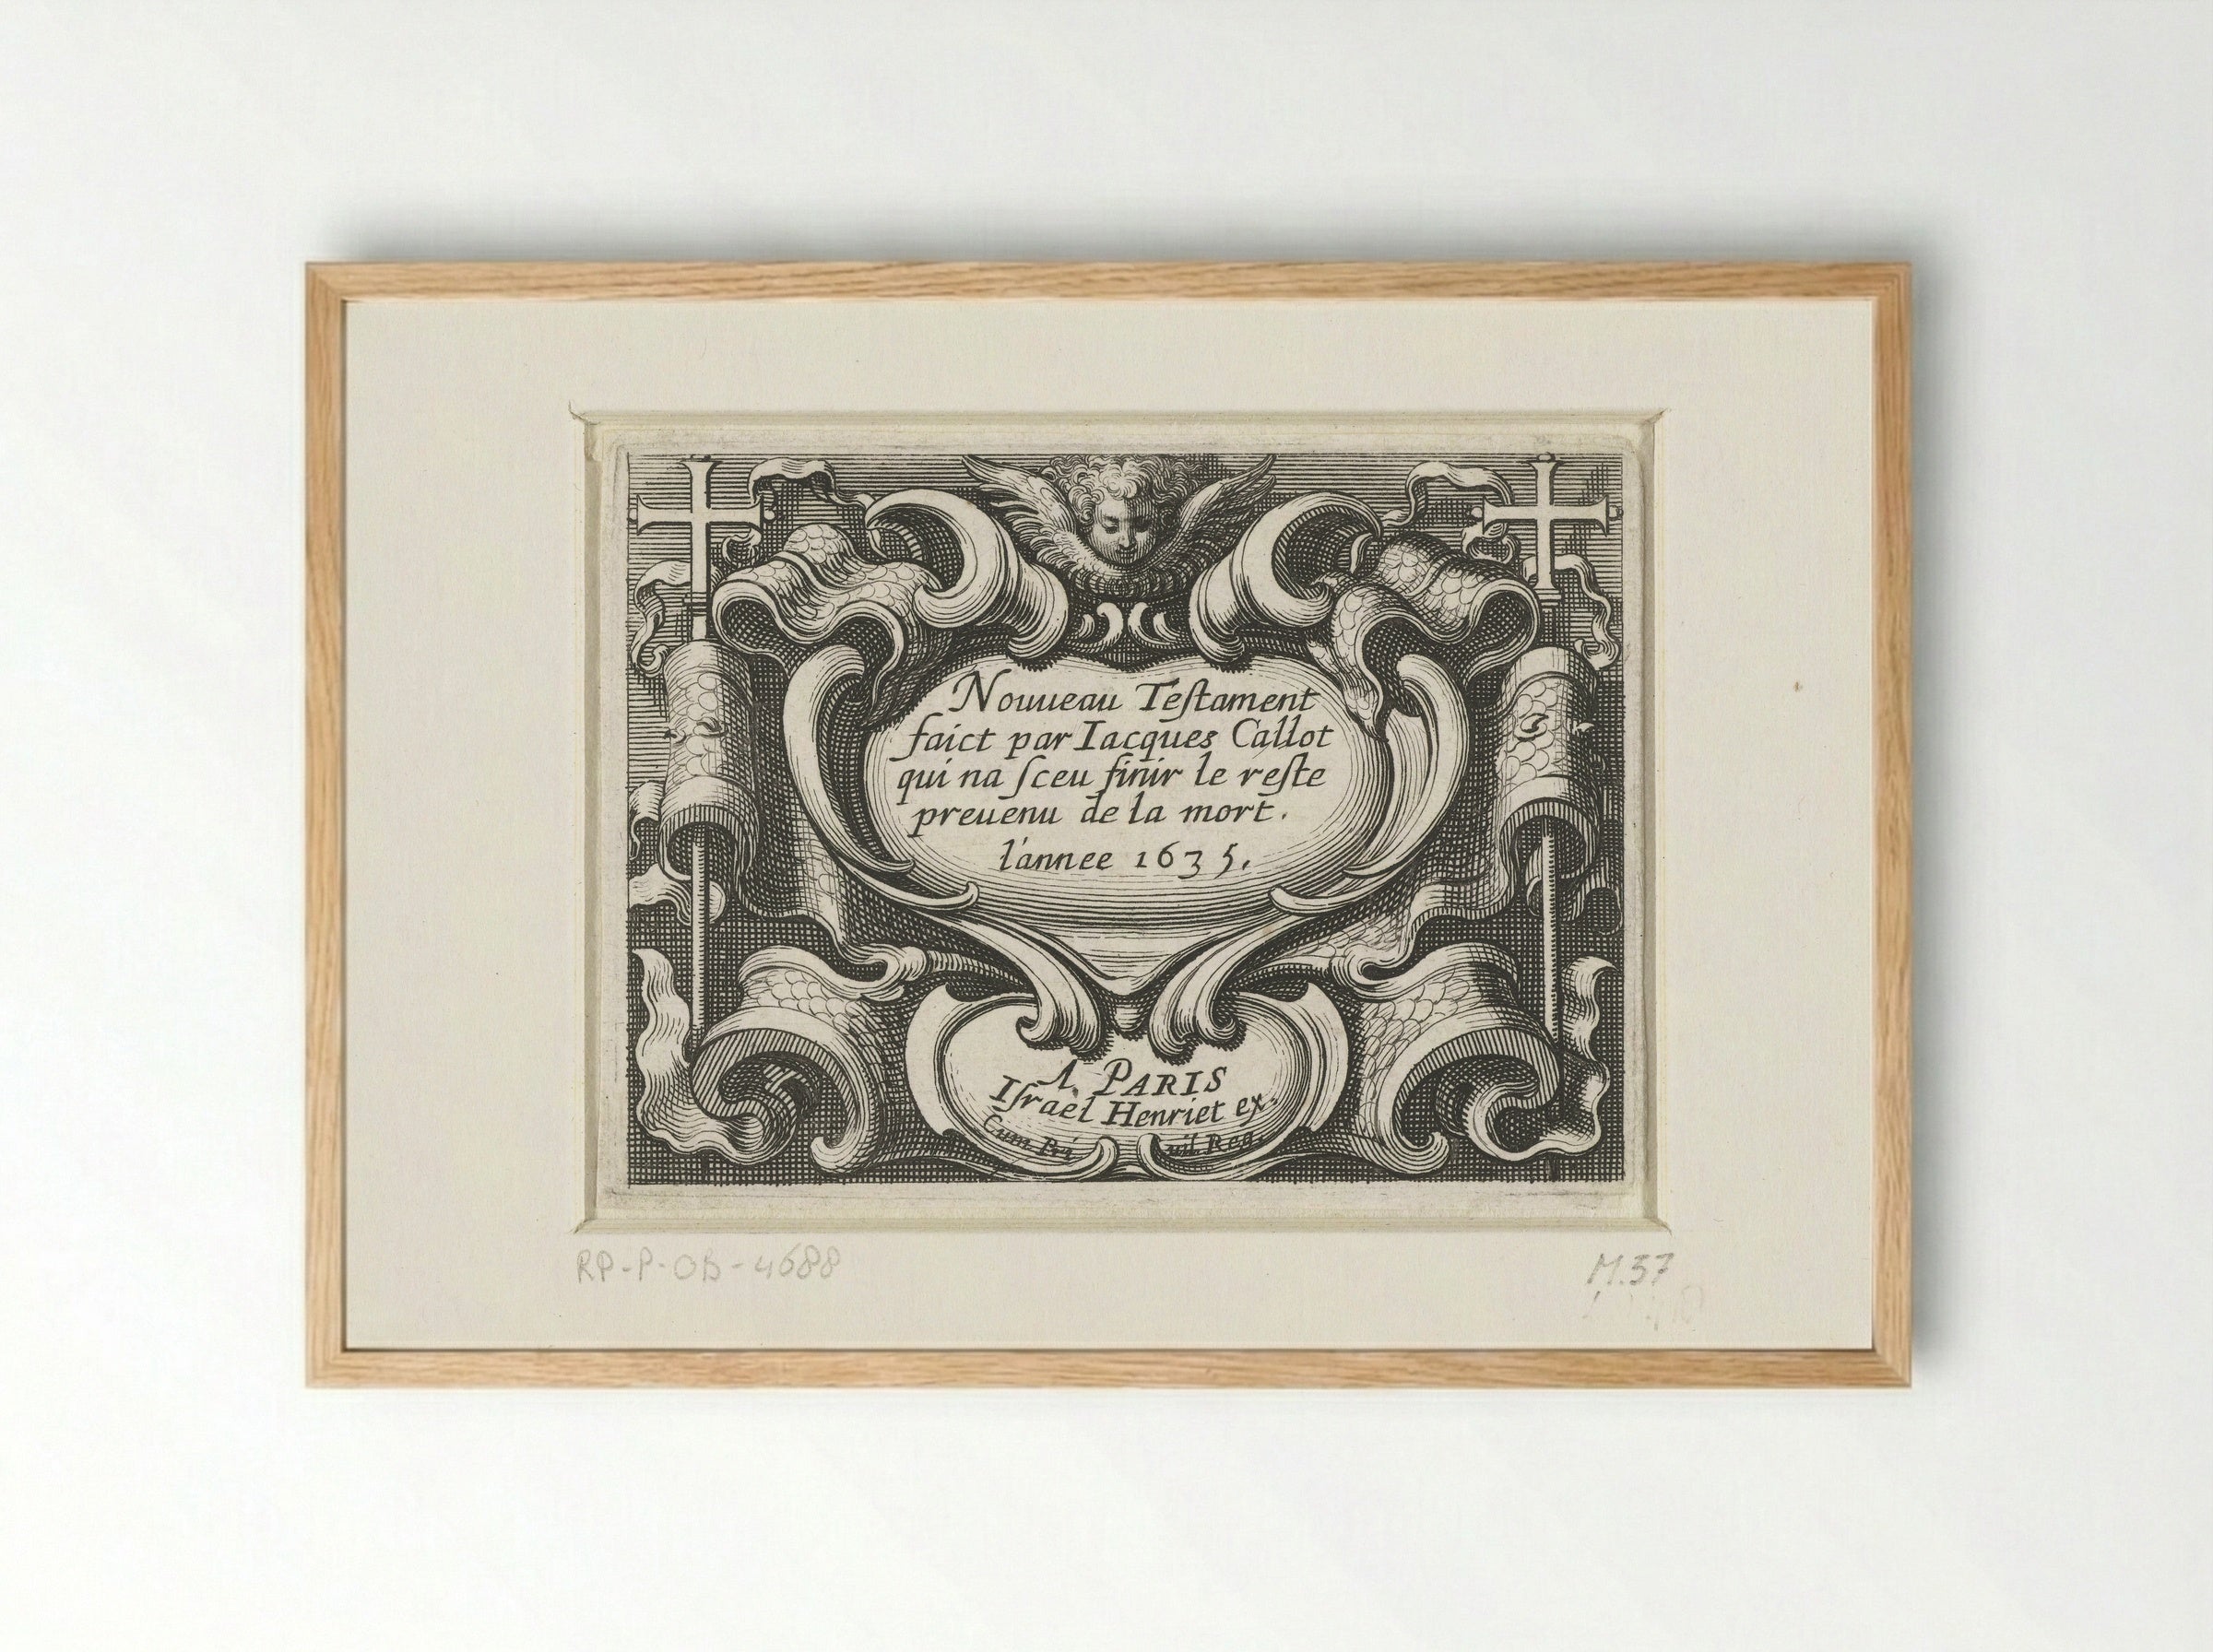 Nouueau Teſtament
faict par Iacques Callot
qui na ſceu finir le reſte
preuenu de la mort.
l'annee 1635.
A PARIS
Iſrael Henriet ex.
Cum Pri uil. Reg.
RP-P-OB-4688
M.37